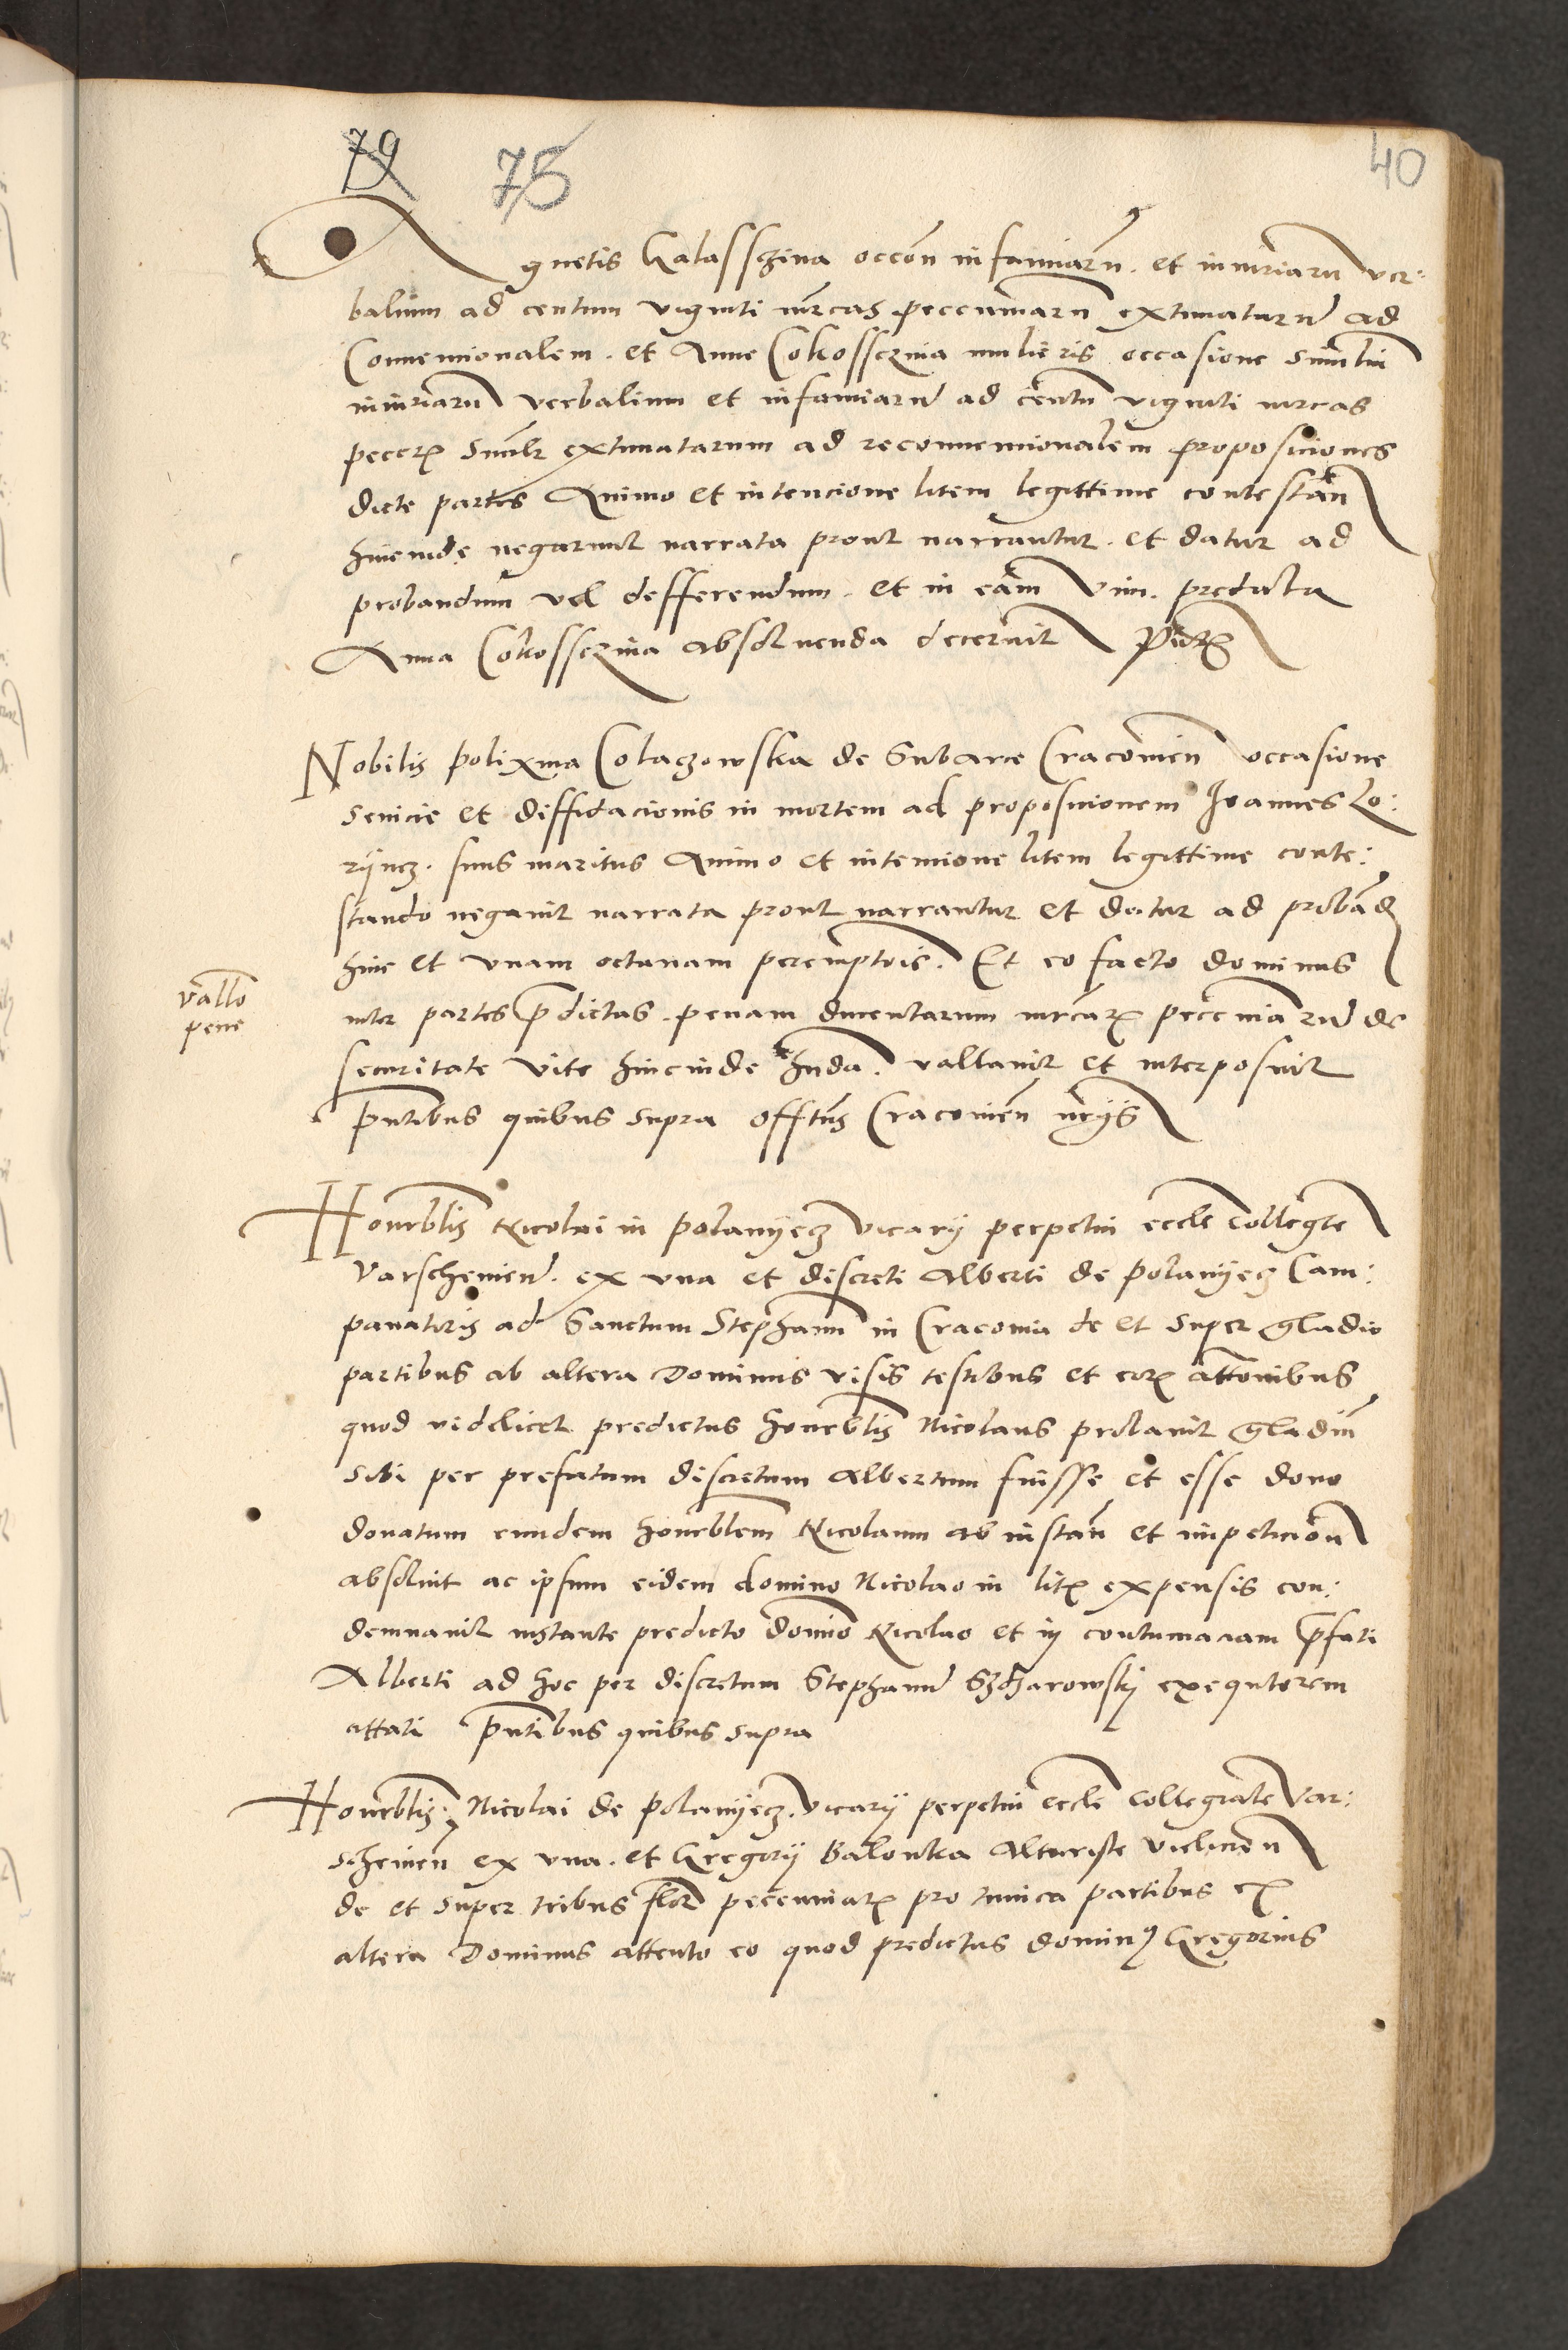 79 75 40
Agnetis Galasschina occon infamiarū et iniuriarū ver:
balium ad centum viginti mrcas peccuniarū extimaturū ad
Conuencionalem. et Anne Cokossczina mulieris occasione similiū
iniuriarū verbalium et infamiarū ad centū viginti mrcas
peccꝝ similr extimatarum ad reconuencionalem proposiciones
dicte partes Animo et intencione litem legittime contestan
hincinde negarunt narrata prout narrantur. et datur ad
probandum vel defferendum. et in eam vim. predicta
Anna Cokossczina absoluenda decernit
Nobilis Polixina Colaczowska de Subarce Cracouien occasione
Seuicie et diffidacionis in mortem ad proposicionem Joannes Lo:
rÿncz. suus maritus Animo et intencione litem legittime conte:
stando negauit narrata prout narrantur et datur ad proband
hinc et vnam octauam peremptoris. Et eo facto dominus
vallo
pene
inter partes p̄dictas. penam ducentarum mrcaꝝ peccuniarū de
securitate vite hincinde hnda. vallauit et interposuit
pn̄tibus quibus supra offtus Cracouien nrijs
Honrblis Nicolai in Polanÿecz vicarÿ perpetui eccle Collegte
Varscheuien. ex vna et discreti Alberti de Polanÿecz Cam:
panatoris ad Sanctum Stephanū in Cracouia de et super gladio
partibus ab altera Dominus visis testibus et eoꝝ attonibus
quod videlicet predictus honrblis Nicolaus probauit gladiū
sibi per prefatum discretum Albertum fuisse et esse dono
donatum eundem honrblem Nicolaum ab instan et impeticion
absoluit ac ipsum eidem domino Nicolao in litꝭ expensis con:
demnauit instante predicto domino Nicolao et in contumaciam p̄fati
Alberti ad hoc per discretum Stephanū Szcharowskÿ exequtorem
attati pn̄tibus quibus supra
Honrblis Nicolai de Polanÿecz. vicarÿ perpetui eccle Collegiate Var:
scheuien ex vna. et Gregorÿ Balouka Altariste vielicien
de et super tribus flor peccuniaꝝ pro tunica partibus ex
altera Dominus attento eo quod predictus dominꝰ Gregorius